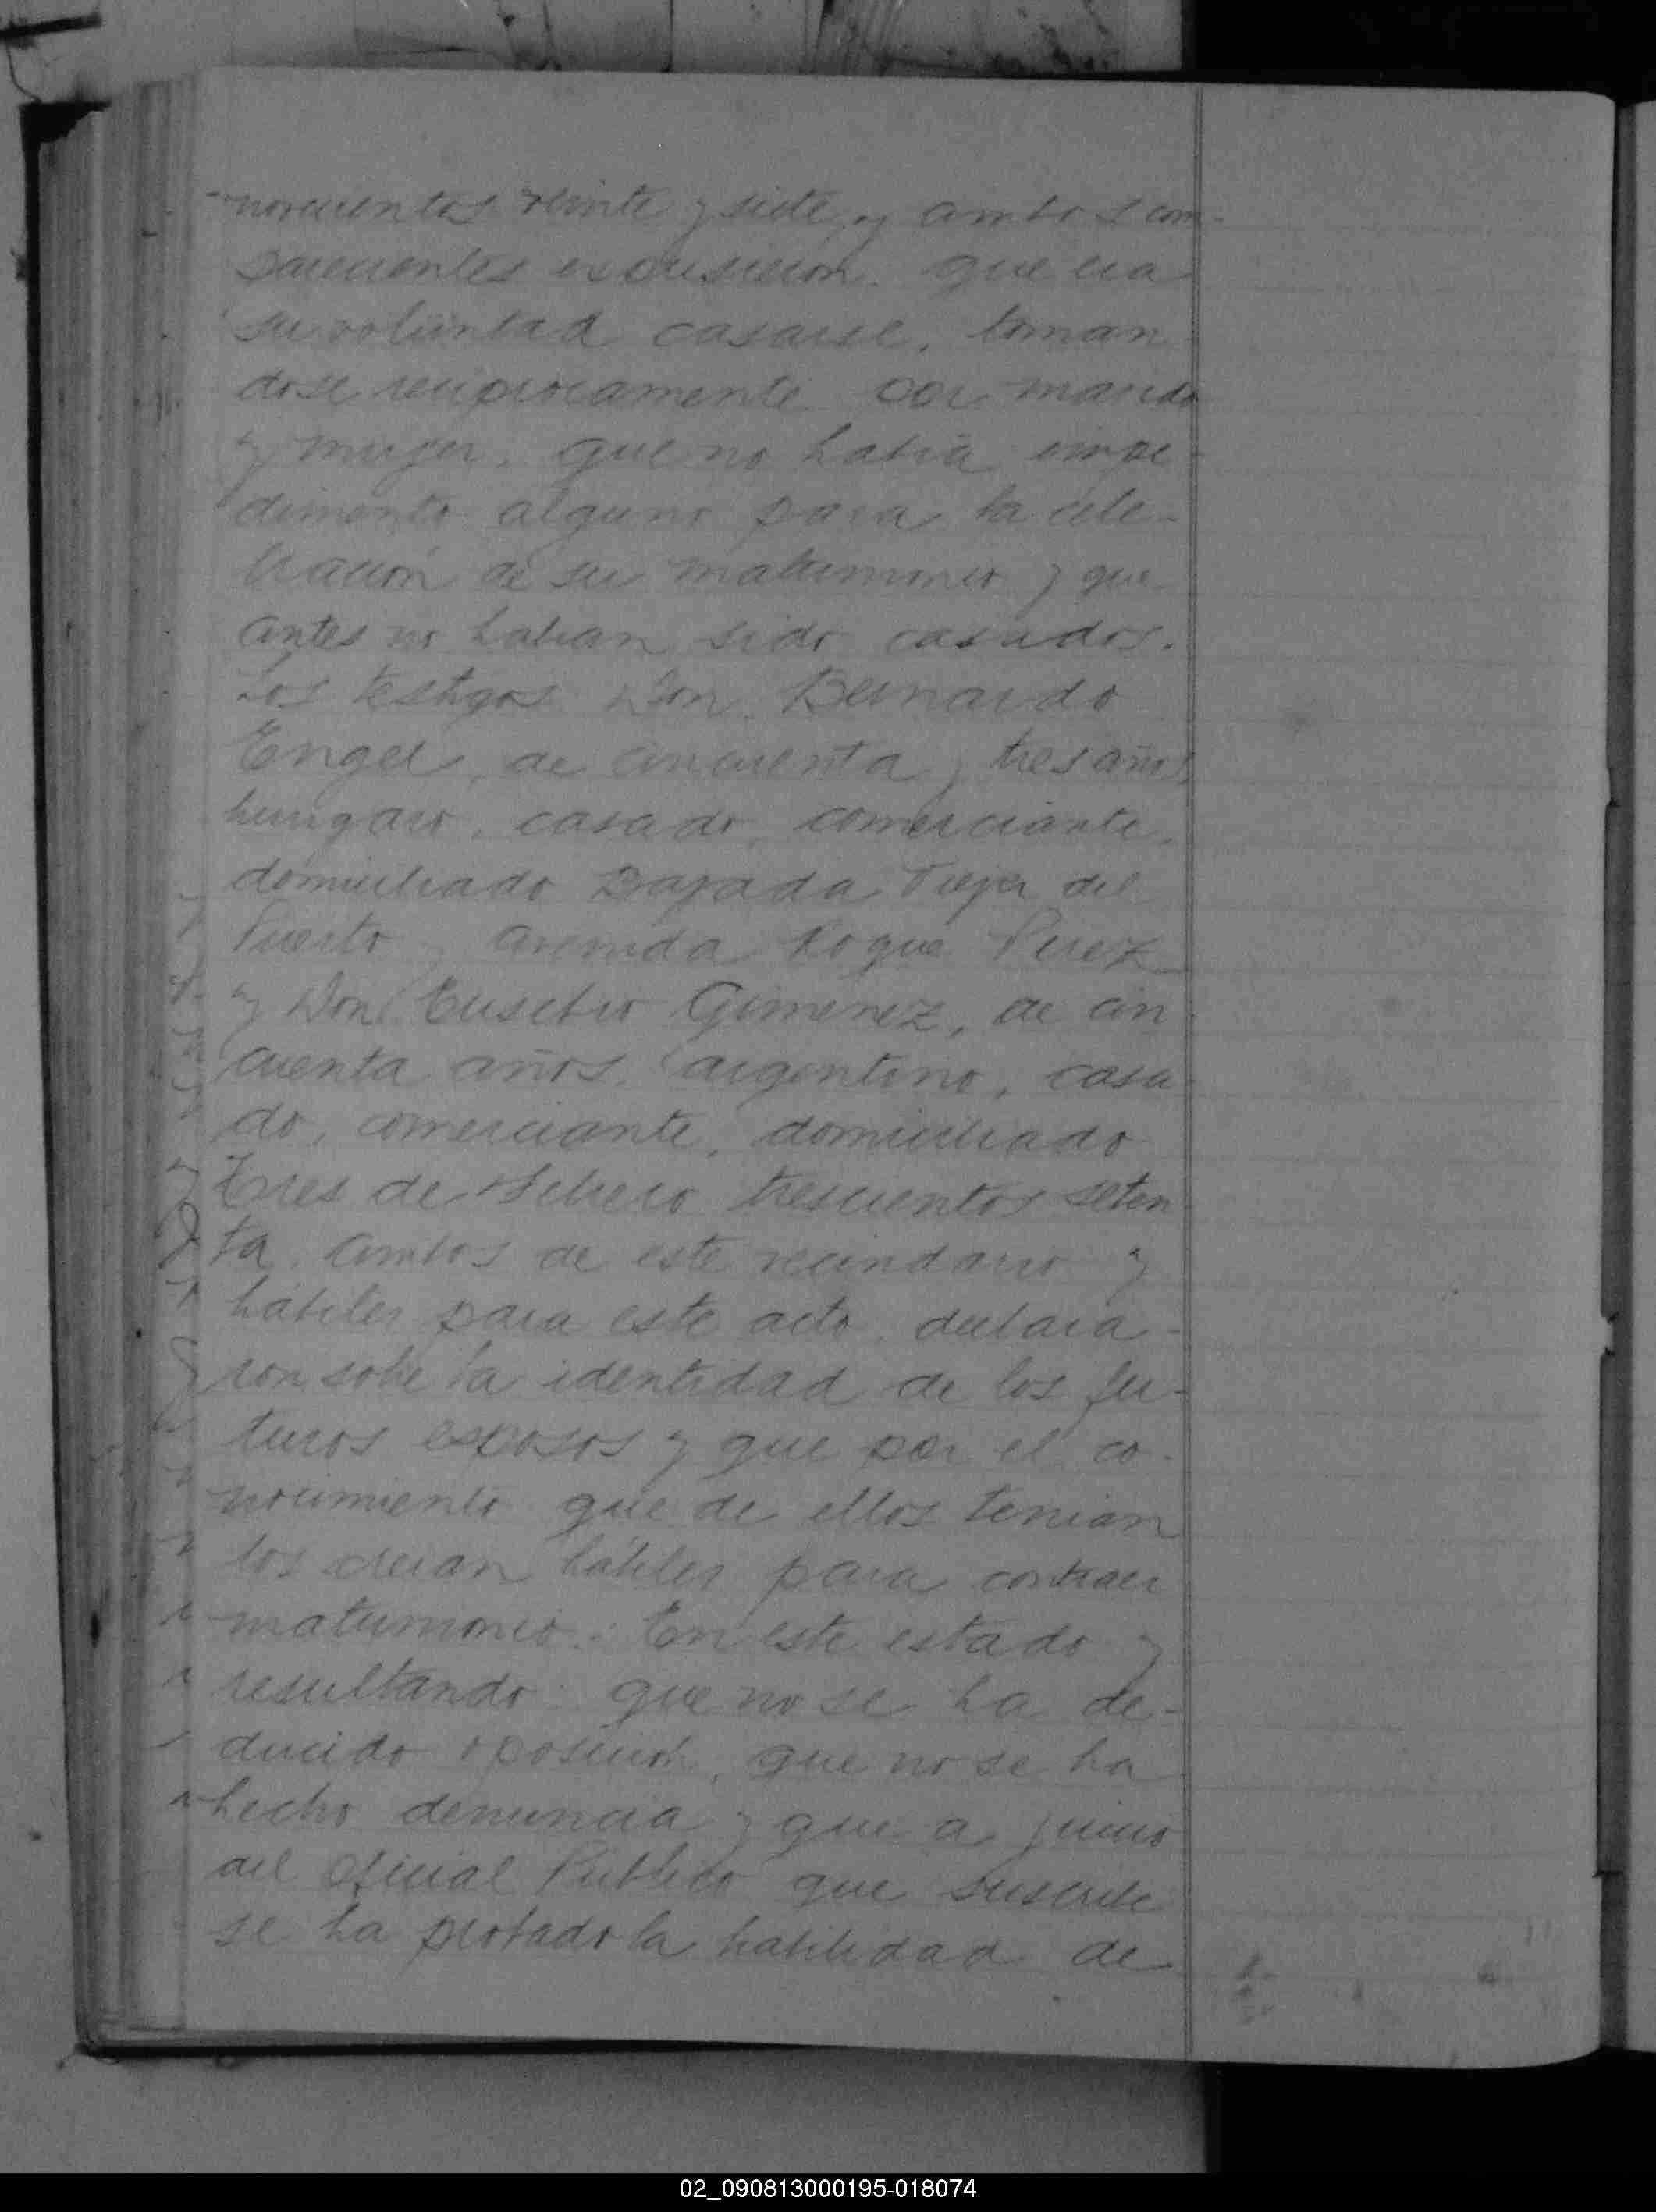 novecientos veinte y siete, y ambos com-
parecientes expusieron: que era
su voluntad casarse, toman-
dose reciprocamente por marido
y mujer, que no habia impe-
dimento alguno para la cele-
bración de su matrimonio y que
antes no habian sido casados.
Los testigos Don Bernardo
Engel, de cincuenta y tres años
hungaro, casado, comerciante,
domiciliado Bajada Vieja del
Puerto y avenida Roque Perez
y Don Eusebio Gimenez, de cin
cuenta años, argentino, casa-
do, comerciante, domiciliado
Tres de Febrero trescientos seten
ta, ambos de este vecindario y
hábiles para este acto, declara-
ron sobre la identidad de los fu-
turos esposos y que por el co-
nocimiento que de ellos tenian
los creian hábiles para contraer
matrimonio. En este estado y
resultando: que no se ha de-
ducido oposición, que no se ha
hecho denuncia y que a juicio
del Oficial Público que suscribe
se ha probado la habilidad de
02_090813000195-018074